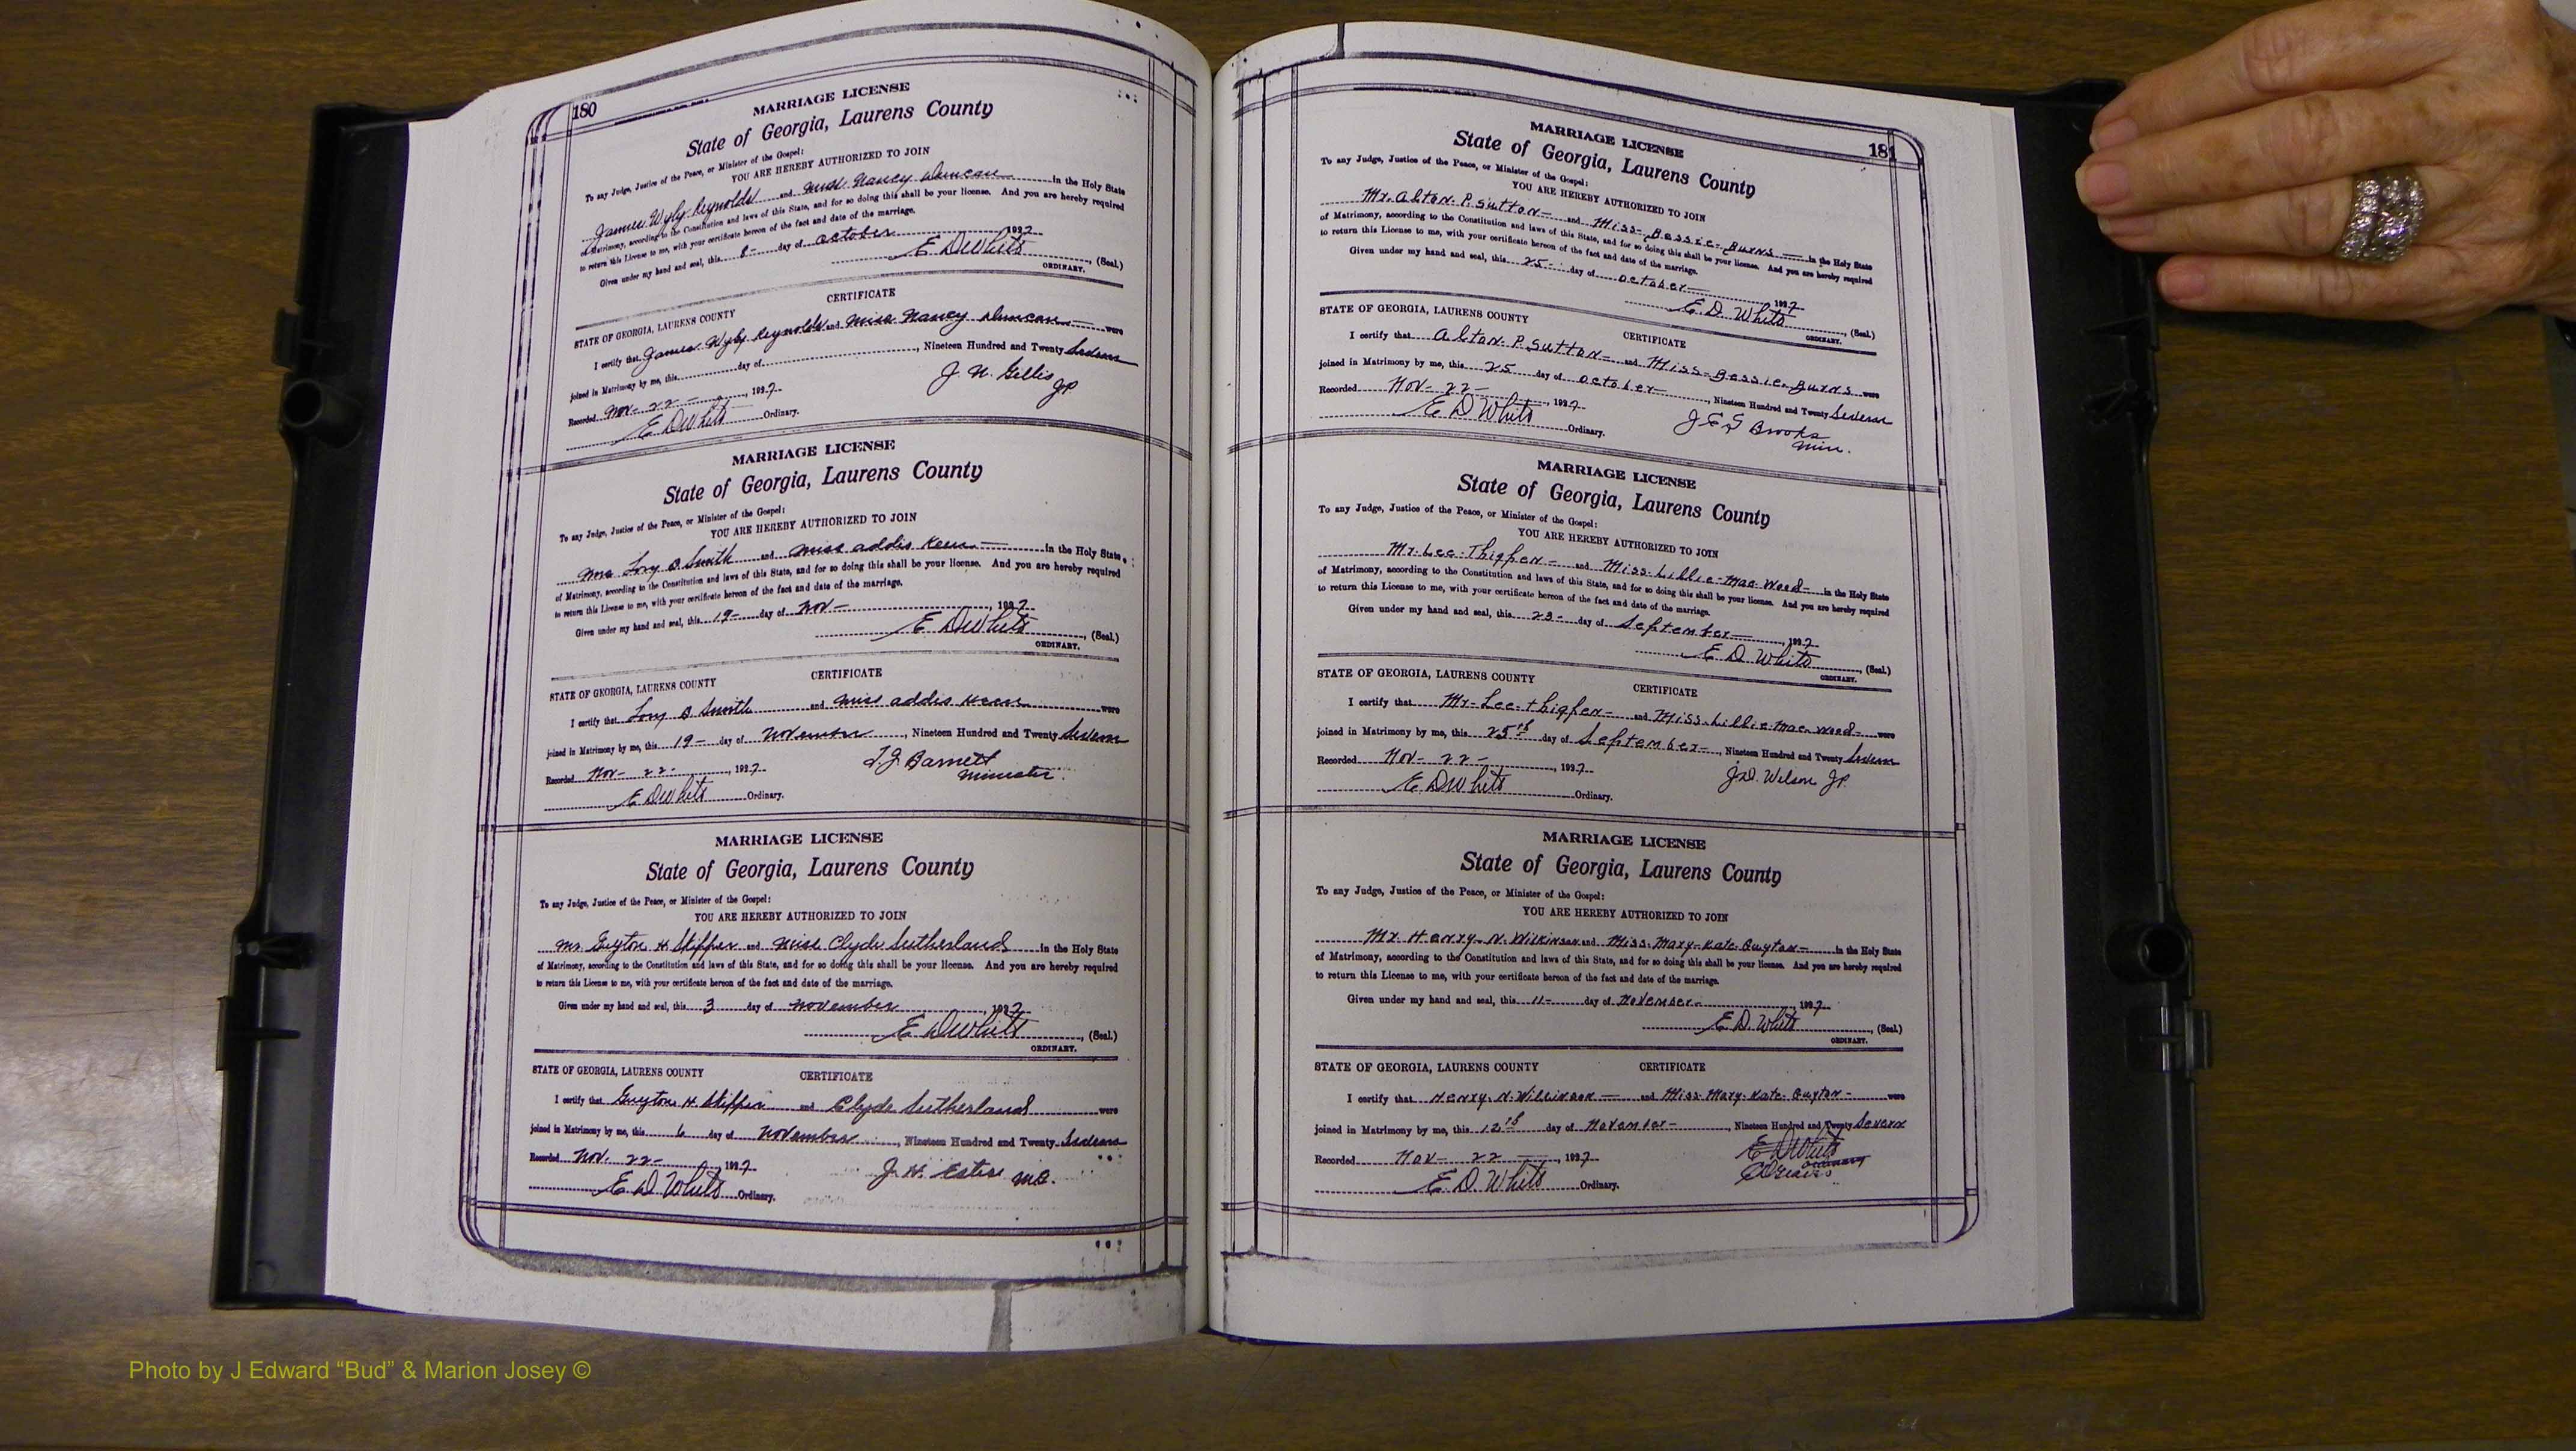 180
MARRIAGE LICENSE
State of Georgia, Laurens County
To any Judge, Justice of the Peace, or Minister of the Gospel:
YOU ARE HEREBY AUTHORIZED TO JOIN
James Wyly Reynolds and Miss Nancy Duncan in the Holy State
of Matrimony, according to the Constitution and laws of this State, and for so doing this shall be your license. And you are hereby required
to return this License to me, with your certificate hereon of the fact and date of the marriage.
Given under my hand and seal, this 8- day of October 1927
E D White, (Seal.)
ORDINARY.
CERTIFICATE
STATE OF GEORGIA, LAURENS COUNTY
I certify that James Wyly Reynolds and Miss Nancy Duncan were
joined in Matrimony by me, this day of , Nineteen Hundred and Twenty Seven
Recorded Nov- 22- , 1927
J. N. Gillis JP
E D White Ordinary.
MARRIAGE LICENSE
State of Georgia, Laurens County
To any Judge, Justice of the Peace, or Minister of the Gospel:
YOU ARE HEREBY AUTHORIZED TO JOIN
B Smith and Miss Addis Keen in the Holy State
of Matrimony, according to the Constitution and laws of this State, and for so doing this shall be your license. And you are hereby required
to return this License to me, with your certificate hereon of the fact and date of the marriage.
Given under my hand and seal, this 19- day of Nov- , 1927
E D White, (Seal.)
ORDINARY.
CERTIFICATE
STATE OF GEORGIA, LAURENS COUNTY
I certify that B Smith and Miss Addis Keen were
joined in Matrimony by me, this 19- day of November , Nineteen Hundred and Twenty Seven
Recorded Nov- 22- , 1927
Barnett
Minister.
E D White Ordinary.
MARRIAGE LICENSE
State of Georgia, Laurens County
To any Judge, Justice of the Peace, or Minister of the Gospel:
YOU ARE HEREBY AUTHORIZED TO JOIN
Mr Guyton H Skipper and Miss Clyde Sutherland in the Holy State
of Matrimony, according to the Constitution and laws of this State, and for so doing this shall be your license. And you are hereby required
to return this License to me, with your certificate hereon of the fact and date of the marriage.
Given under my hand and seal, this 3 day of November , 1927
E D White, (Seal.)
ORDINARY.
STATE OF GEORGIA, LAURENS COUNTY CERTIFICATE
I certify that Guyton H. Skipper and Clyde Sutherland were
joined in Matrimony by me, this 6 day of November , Nineteen Hundred and Twenty Seven
Recorded Nov. 22- , 1927
J. H. Estes M.G.
E D White Ordinary.
181
MARRIAGE LICENSE
State of Georgia, Laurens County
To any Judge, Justice of the Peace, or Minister of the Gospel:
YOU ARE HEREBY AUTHORIZED TO JOIN
Mr. Alton P. Sutton- and Miss- Bessie- Burns — in the Holy State
of Matrimony, according to the Constitution and laws of this State, and for so doing this shall be your license. And you are hereby required
to return this License to me, with your certificate hereon of the fact and date of the marriage.
Given under my hand and seal, this 25- day of October- 1927
E. D. White, (Seal.)
ORDINARY.
STATE OF GEORGIA, LAURENS COUNTY CERTIFICATE
I certify that Alton P. Sutton- and Miss- Bessie Burns were
joined in Matrimony by me, this 25 day of October- , Nineteen Hundred and Twenty Seven
Recorded Nov- 22- , 1927
J E S Brooks
Min.
E D White Ordinary.
MARRIAGE LICENSE
State of Georgia, Laurens County
To any Judge, Justice of the Peace, or Minister of the Gospel:
YOU ARE HEREBY AUTHORIZED TO JOIN
Mr. Lee Thigpen- and Miss- Lillie-Mae- Wood- in the Holy State
of Matrimony, according to the Constitution and laws of this State, and for so doing this shall be your license. And you are hereby required
to return this License to me, with your certificate hereon of the fact and date of the marriage.
Given under my hand and seal, this 23- day of September- , 1927
E D White, (Seal.)
ORDINARY.
STATE OF GEORGIA, LAURENS COUNTY CERTIFICATE
I certify that Mr- Lee- Thigpen- and Miss- Lillie-Mae- Wood- were
joined in Matrimony by me, this 25th day of September- , Nineteen Hundred and Twenty Seven
Recorded Nov- 22- , 1927
J.D. Wilson JP.
E D White Ordinary.
MARRIAGE LICENSE
State of Georgia, Laurens County
To any Judge, Justice of the Peace, or Minister of the Gospel:
YOU ARE HEREBY AUTHORIZED TO JOIN
Mr. Henry- N. Wilkinson and Miss. Mary-Kate-Guyton- in the Holy State
of Matrimony, according to the Constitution and laws of this State, and for so doing this shall be your license. And you are hereby required
to return this License to me, with your certificate hereon of the fact and date of the marriage.
Given under my hand and seal, this 11- day of November- , 1927
E. D. White, (Seal.)
ORDINARY.
STATE OF GEORGIA, LAURENS COUNTY CERTIFICATE
I certify that Henry- N. Wilkinson — and Miss Mary- Kate- Guyton- were
joined in Matrimony by me, this 12th day of November- , Nineteen Hundred and Twenty Seven
E D White
Ordinary
Recorded Nov- 22 — , 1927
E. D. White Ordinary.
Photo by J Edward “Bud” & Marion Josey ©